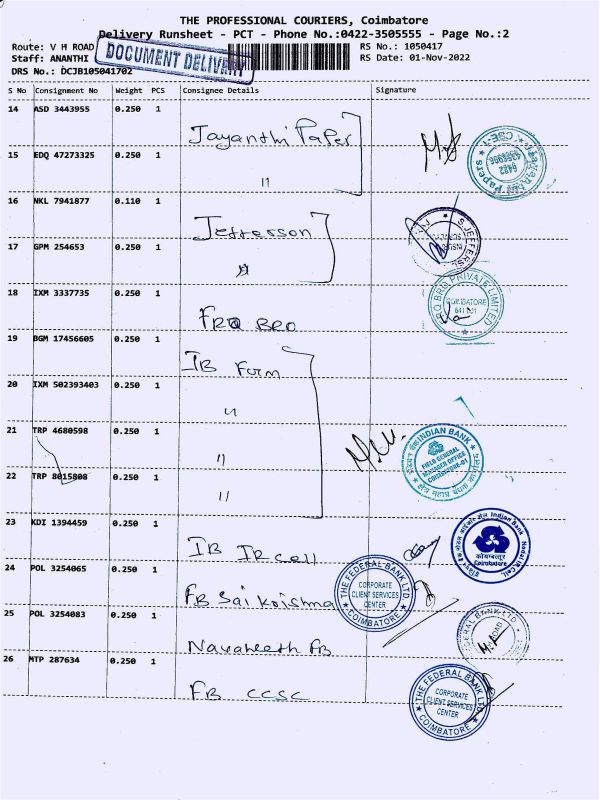 THE PROFESSIONAL COURIERS, Coimbatore
Delivery Runsheet - PCT - Phone No.:0422-3505555 - Page No.:2
Route: V H ROAD
Staff: ANANTHI
DRS No.: DCJB105041702
DOCUMENT DELIVERY
RS No.: 1050417
RS Date: 01-Nov-2022
S No Consignment No Weight PCS Consignee Details Signature
14 ASD 3443955 0.250 1 Jayanthi Paper
15 EDQ 47273325 0.250 1 "
16 NKL 7941877 0.110 1 Jefferson
17 GPM 254653 0.250 1 "
18 IXM 3337735 0.250 1 FRQ BRO
19 BGM 17456605 0.250 1 IB Form
20 IXM 502393403 0.250 1 "
21 TRP 4680598 0.250 1 "
22 TRP 8015808 0.250 1 "
23 KDI 1394459 0.250 1 IB IR cell
24 POL 3254065 0.250 1 FB Sai Krisma
25 POL 3254083 0.250 1 Navaneeth FB
26 MTP 287634 0.250 1 FB CCSC
Jayanthi Papers
CBE-1
BRO PRIVATE LIMITED
COIMBATORE
641 001
INDIAN BANK
FIELD GENERAL
MANAGER OFFICE
COIMBATORE-01
Indian Bank
कोयम्बत्तूर
Coimbatore
THE FEDERAL BANK LTD
CORPORATE
CLIENT SERVICES
CENTER
COIMBATORE
FEDERAL BANK LTD
ROAD
THE FEDERAL BANK LTD
CORPORATE
CLIENT SERVICES
CENTER
COIMBATORE